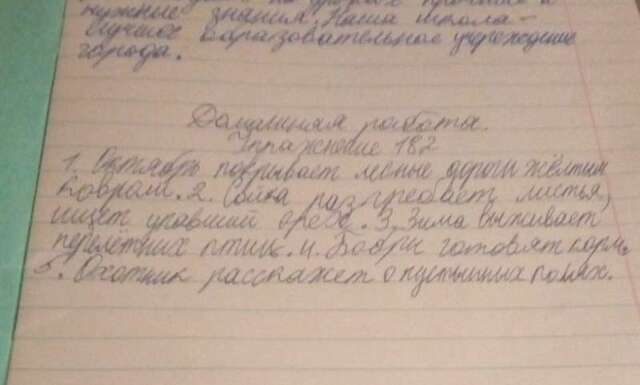 нужные знания. Наша школа -
лучшее образовательное учреждение
города.
Домашняя работа.
Упражнение 182
1. Октябрь покрывает лесные дороги жёлтым
ковром. 2. Сойка разгребает листья,
ищет упавший орех. 3. Зима выживает
перелётных птиц. 4. Бобры готовят корм.
5. Охотник расскажет о пустынных полях.